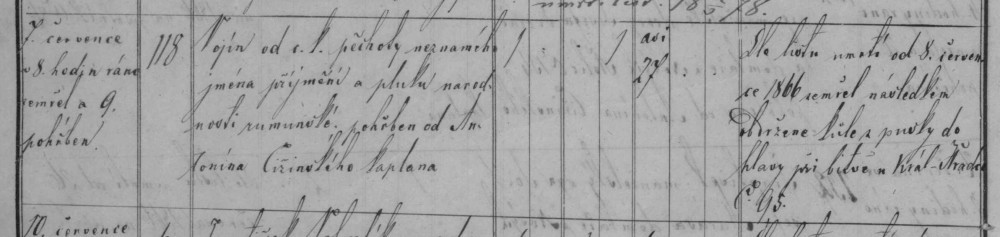 7. července
v 8. hodin ráno
zemřel a 9.
pohřben.
118
Vojín od c. k. pěchoty neznámého
jména příjmění a pluku národ-
nosti rumunské. pohřben od An-
tonína Čižinského kaplana
1 . . 1
asi
27
Dle listu úmrtí od 8. červen-
ce 1866 zemřel následkem
obdržené kule z pušky do
hlavy při bitvě u Král-Hradce
Č. 95.
10. července